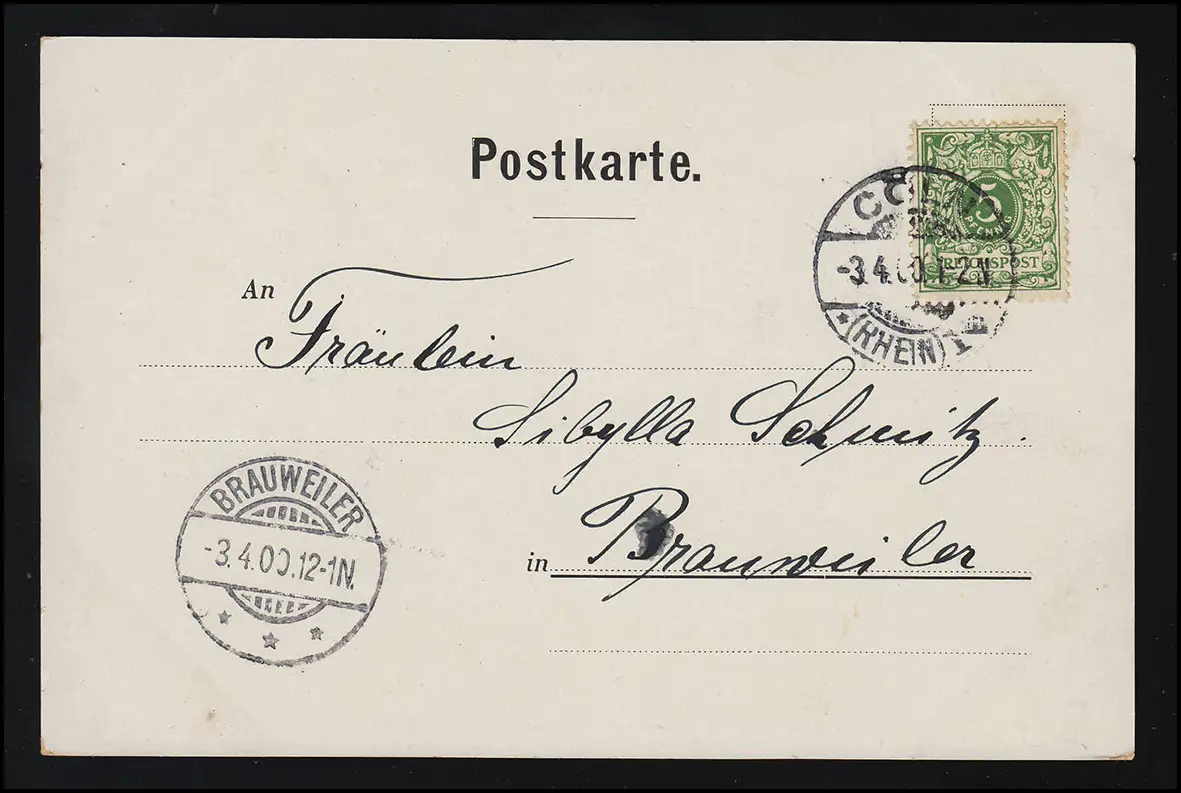 Postkarte.
5
PFENNIG
REICHSPOST
CÖLN
-3.4.00.1-2N.
* (RHEIN) 1
An
Fräulein
Sibylla Schmitz.
in Brauweiler
BRAUWEILER
-3.4.00.12-1N.
* * *